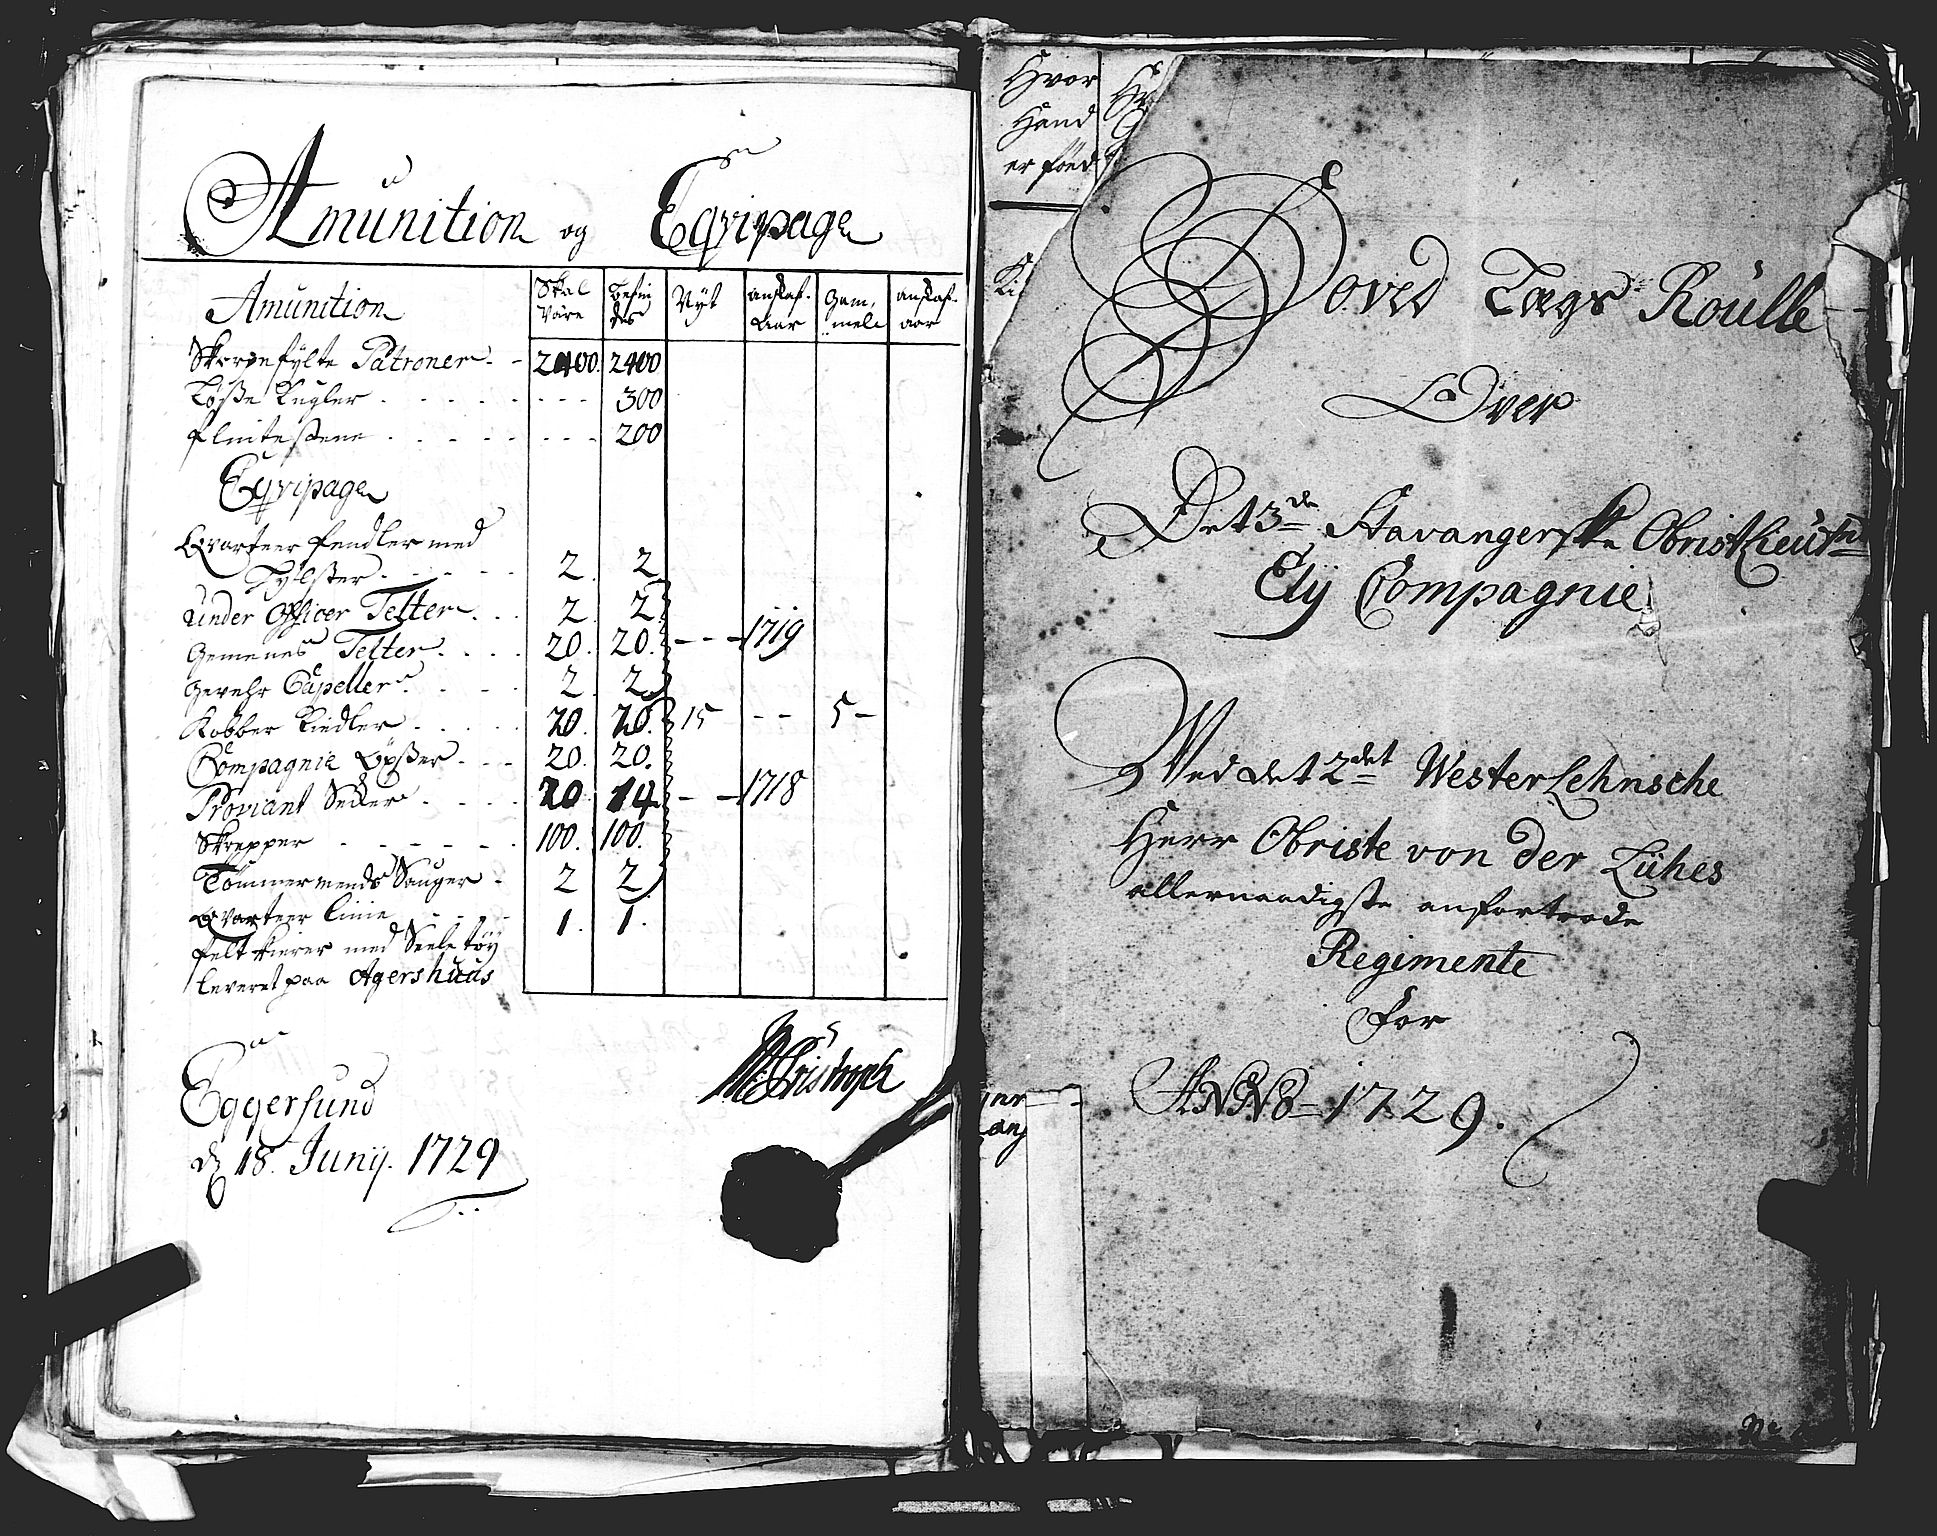 Amunition og Eqvipage
Amunition
Skal Være
Befindes
Nyt
anskaf. Aar
Gam, mel
anskaf. aar
Skarpefylte Patroner. - 2400. 2400
Løsse Kugler . . . . . - - - 300
Flintestene . . . . - - - 200
Eqvipage
Qvarteer fendler med
Tylster. . . . . 2. 2
Under Officer Telter. . . 2. 2.
Gemenes Telter. . . . 20. 20. - - - 1719
Gevehr Capeller. . . . 2. 2
Kobber Kiedler . . . . 20. 20. 15 - - 5 -
Compagnie Øxser. . . 20. 20.
Proviant Secker . . . . 20 14 - - 1718
Skrepper - - - - - . 100. 100.
Tømmermends Sauger - 2 2
Qvarteer linie 1. 1.
felt kierer med Seeletøy
leveret paa Agershuus
Eggersund
d 18. Junij. 1729
Hvor
Hand
er føed
Ki
Hoved Lægs Roulle
Over
Det 3de Stavangerske ObristLieutn
Ely Compagnie
Ved det 2det WesterLehnsche
Herr Obriste von der Lühes
allernaadigste anfortrode
Regimente
For
ANNO 1729.